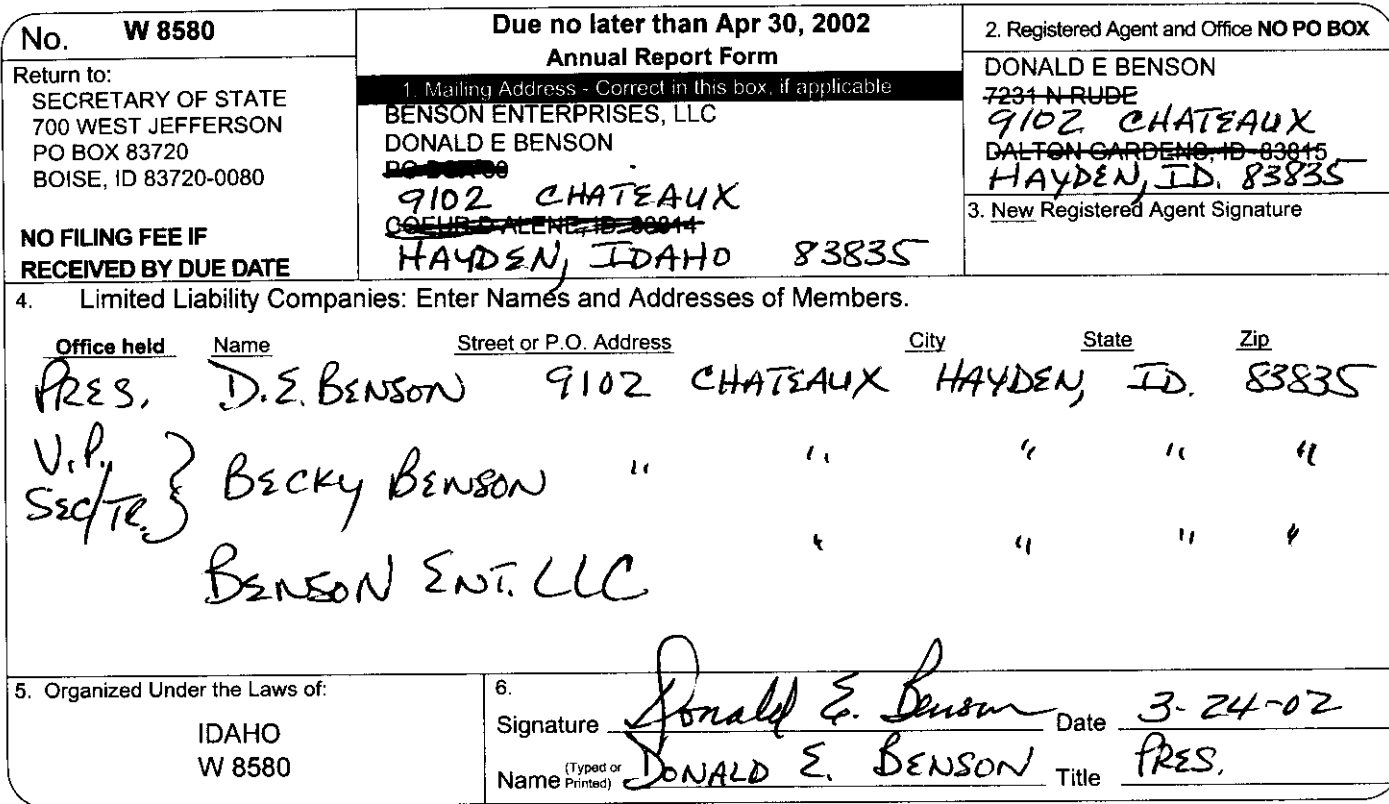 No. W 8580
Return to:
SECRETARY OF STATE
700 WEST JEFFERSON
PO BOX 83720
BOISE, ID 83720-0080
NO FILING FEE IF
RECEIVED BY DUE DATE
Due no later than Apr 30, 2002
Annual Report Form
1. Mailing Address - Correct in this box, if applicable
BENSON ENTERPRISES, LLC
DONALD E BENSON
PO BOX
9102 CHATEAUX
COEUR D ALENE, ID 83814
HAYDEN, IDAHO 83835
2. Registered Agent and Office NO PO BOX
DONALD E BENSON
7231 N RUDE
9102 CHATEAUX
DALTON GARDENS, ID 83815
HAYDEN, ID. 83835
3. New Registered Agent Signature
4. Limited Liability Companies: Enter Names and Addresses of Members.
Office held Name Street or P.O. Address City State Zip
PRES. D.E. BENSON 9102 CHATEAUX HAYDEN, ID. 83835
V.P.
SEC/TR. } BECKY BENSON " " " " "
BENSON ENT. LLC " " " "
5. Organized Under the Laws of:
IDAHO
W 8580
6.
Signature Donald E. Benson Date 3-24-02
Name (Typed or Printed) DONALD E. BENSON Title PRES.